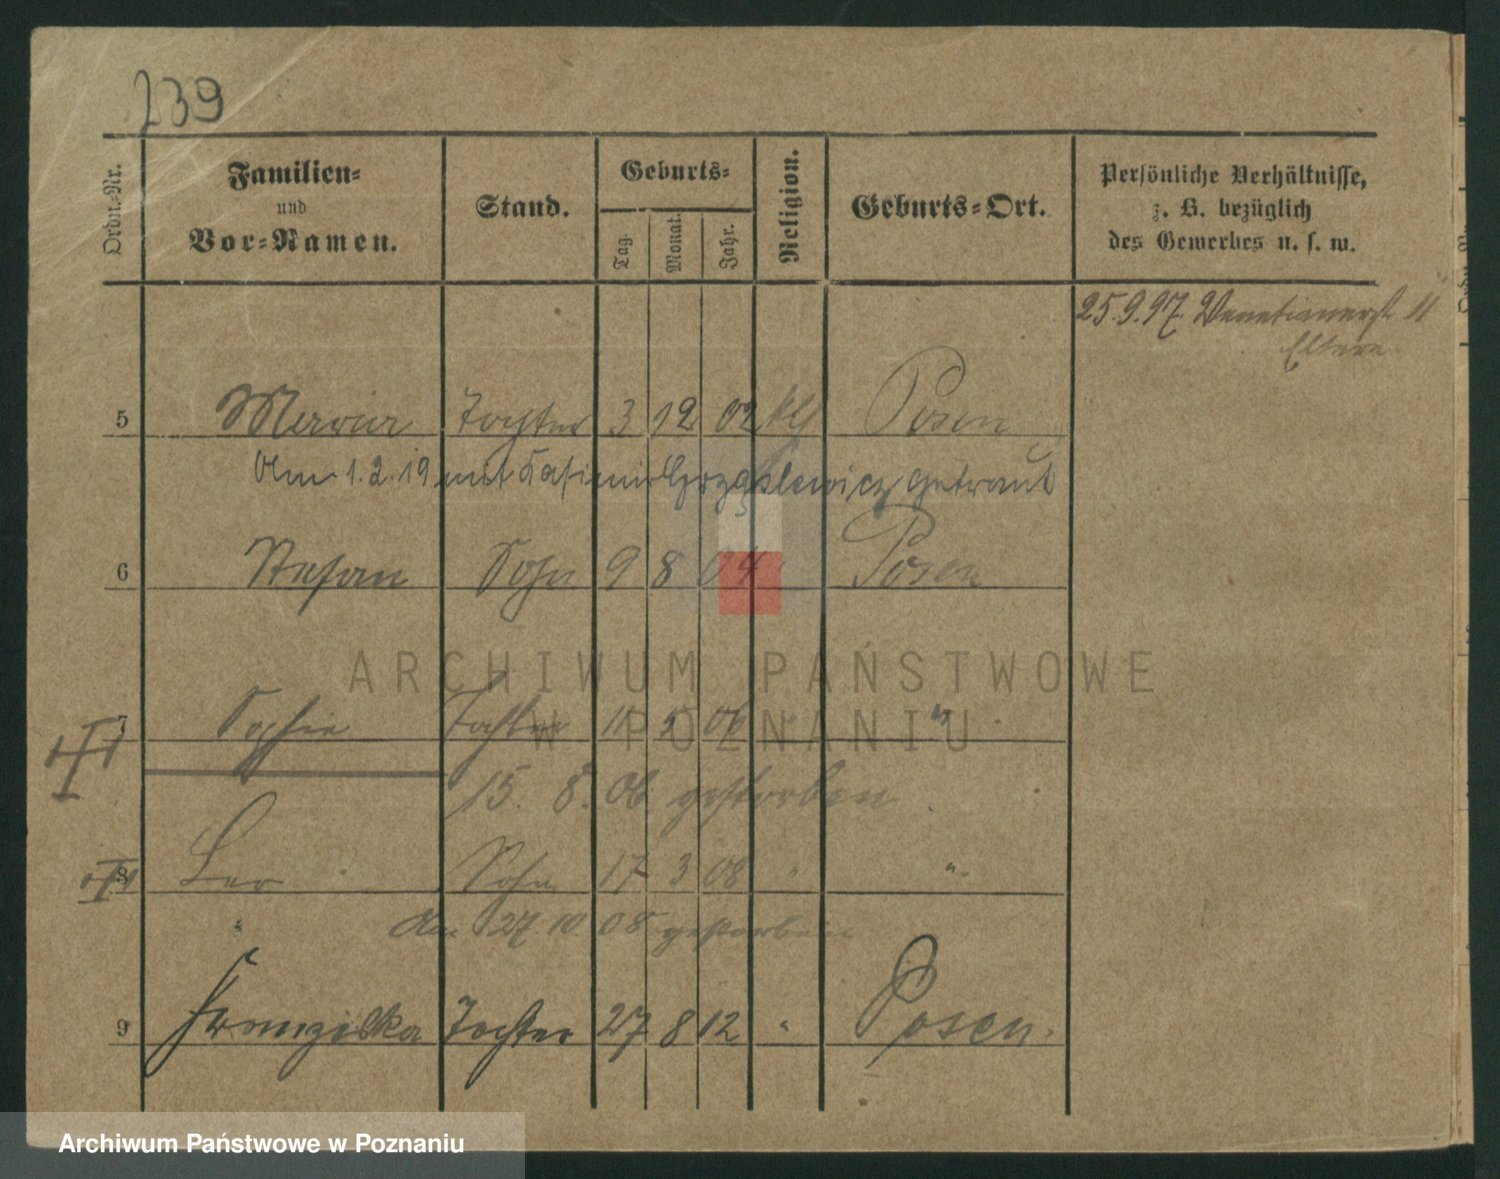 239
Ordn.-Nr. Familien- und Vor-Namen. Stand. Geburts- Tag. Monat. Jahr. Religion. Geburts-Ort. Persönliche Verhältnisse, z. B. bezüglich des Gewerbes u. s. w.
25.9.97. Venetianerst. 11
Eltern
5 Maria Tochter 3 12 02 kth Posen
Am 1.2.19 mit Kasimir getraut
6 Stefan Sohn 9 8 04 Posen
ARCHIWUM PAŃSTWOWE
W POZNANIU
7 Sophie Tochter 11 5 06 " "
15. 8. 06 gestorben
8 Leo Sohn 17 3 08 " "
" Am 27.10 08 gestorben
9 Franziska Tochter 27 8 12 " Posen.
Archiwum Państwowe w Poznaniu